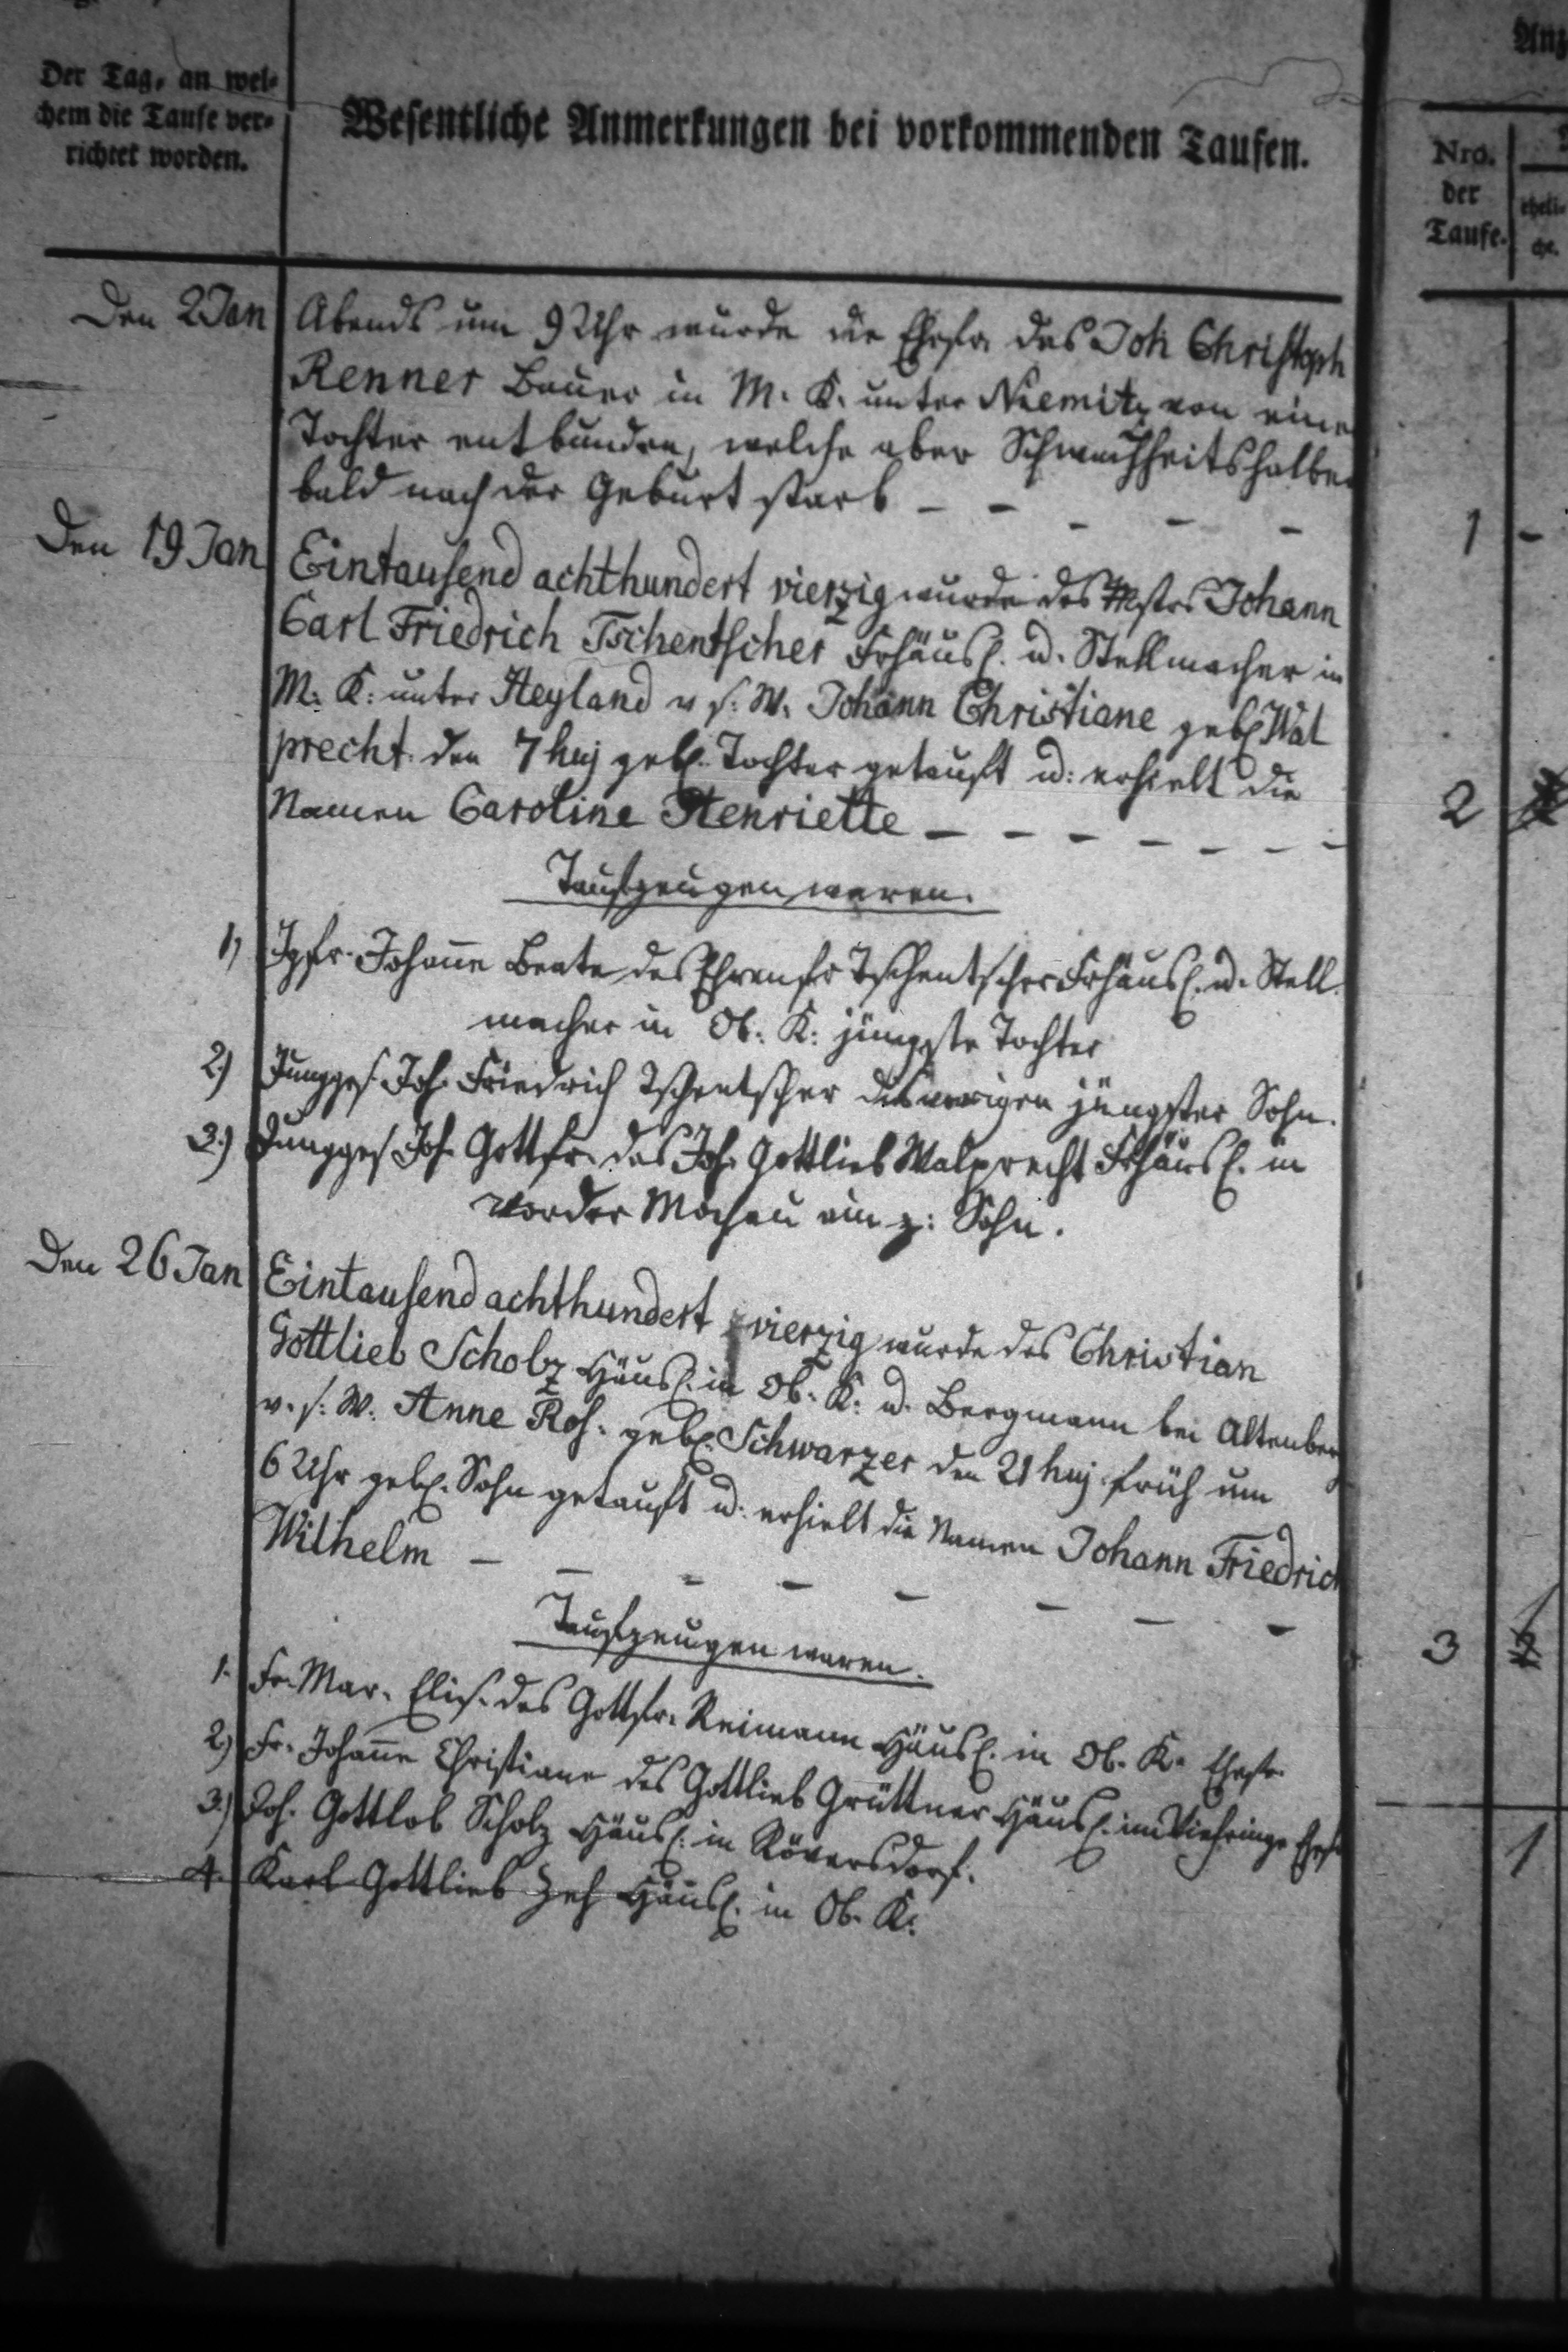 Der Tag, an wel-
chem die Taufe ver-
richtet worden.
Wesentliche Anmerkungen bei vorkommenden Taufen.
Nro.
der
Taufe.
eheli-
che.
Den 2 Jan
Abends um 9 Uhr wurde die Ehefr. des Joh Christoph
Renner Bauer in M. K. unter Niemitz von einer
Tochter entbunden, welche aber Schwachheitshalber
bald nach der Geburt starb - - - - -
1 -
Den 19 Jan
Eintausend achthundert vierzig wurde des Mstrs Johann
Carl Friedrich Tschentscher Frhäusl. u. Stellmacher in
M. K. unter Heyland v s. W. Johann Christiane geb. Wal
precht den 7 huj geb. Tochter getauft u: erhielt die
Namen Caroline Henriette - - - - - - -
2
Taufzeugen waren.
1) Jgfr. Johanne Beate des Ehrenfr Tschentscher Frhäusl. u. Stell
macher in Ob. K: jüngste Tochter
2.) Jungges. Joh. Friedrich Tschentscher des vorigen jüngster Sohn.
3.) Jungges Joh. Gottfr. des Joh. Gottlieb Walprecht Frhäusl. in
vorder Mochau ein z: Sohn.
Den 26 Jan
Eintausend achthundert vierzig wurde des Christian
Gottlieb Scholz Häusl. in Ob. K: u. Bergmann bei Altenberg
v. s. W. Anne Ros. geb. Schwarzer den 21 huj. früh um
6 Uhr geb. Sohn getauft u: erhielt die Namen Johann Friedrich
Wilhelm - - - - - - - -
3
Taufzeugen waren.
1. Fr. Mar. Elis. des Gottfr. Reimann Häusl. in Ob. K. Ehefr.
2) Fr. Johanne Christiane des Gottlieb Grüttner Häusl. im Ehefr
3.) Joh. Gottlob Scholz Häusl. in Röversdorf.
4. Karl Gottlieb Zeh Häusl. in Ob. K.
1